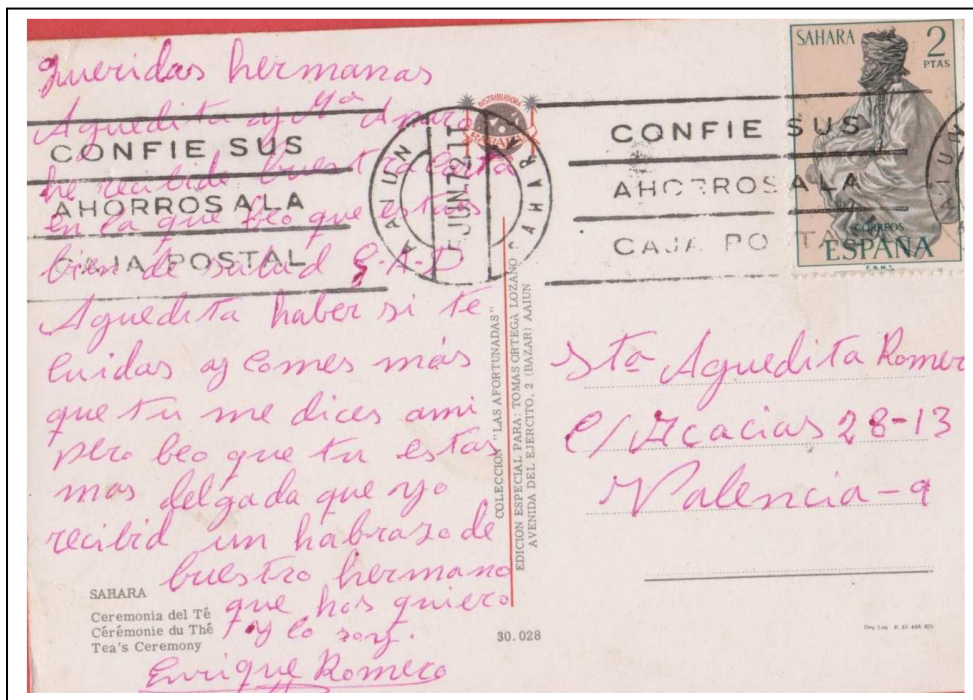 queridas hermanas
Aguedita y Mª
he recibido buestra carta
en la que beo que estais
bien de salud G-A-D
Aguedita haber si te
cuidas y comes más
que tu me dices ami
pero beo que tu estas
mas delgada que yo
recibid un habraso de
buestro hermano
que hos quiero
y lo soy.
Enrique Romero
CONFIE SUS
AHORROS A LA
CAJA POSTAL
AAIUN
SAHARA
JUN 72
DISTRIBUIDORA
CONFIE SUS
AHORROS A LA
CAJA POSTA
AIUN
SAHARA 2
PTAS
CORREOS
ESPAÑA
F.N.M.T.
COLECCION "LAS AFORTUNADAS"
EDICION ESPECIAL PARA: TOMAS ORTEGA LOZANO
AVENIDA DEL EJERCITO, 2 (BAZAR) AAIUN
Sta Aguedita Romer
C/ Acacias 28-13
Valencia-9
SAHARA
Ceremonia del Té
Cérémonie du Thé
Tea's Ceremony
30.028